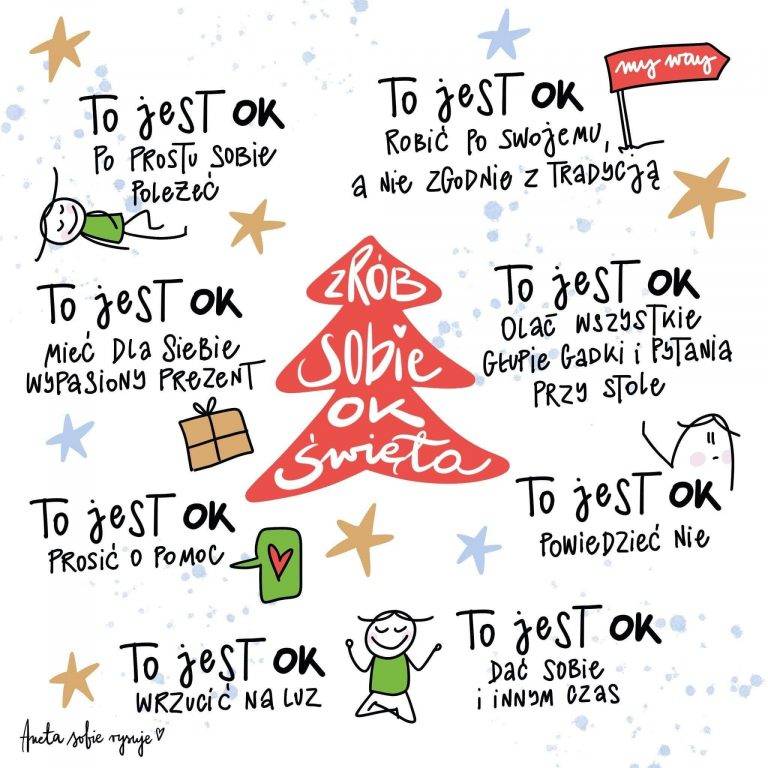 To jEST OK
PO PROSTU SOBIE
POLEŻEĆ
To jEST OK
ROBIĆ PO SWOJEMU,
A NIE ZGODNIE Z TRADYCJĄ
my way
ZRÓB
SOBIE
OK
święta
To jEST OK
MIEĆ DLA SIEBIE
WYPASIONY PREZENT
To jEST OK
OLAĆ WSZYSTKIE
GŁUPIE GADKI i PYTANIA
PRZY STOLE
To jEST OK
PROSIĆ O POMOC
To jEST OK
POWIEDZIEĆ NIE
To jEST OK
WRZUCIĆ NA LUZ
To jEST OK
DAĆ SOBIE
i INNYM CZAS
Aneta sobie rysuje